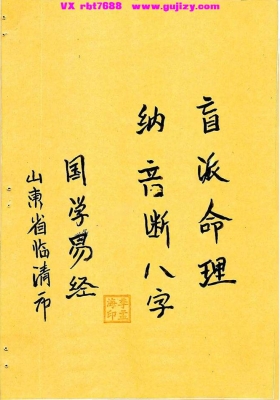 VX rbt7688 www.gujizy.com
盲派命理
纳音断八字
国学易经
山东省临清市